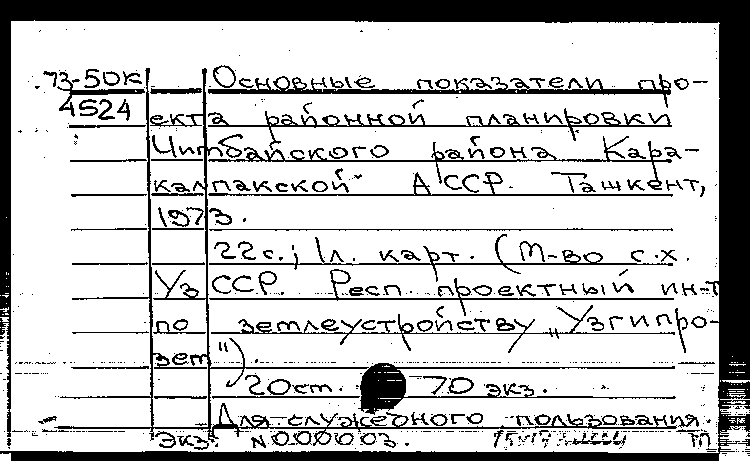 73-50к Основные показатели про-
4524 екта районной планировки
Чимбайского района Кара-
калпакской АССР. Ташкент,
1973.
22с.; 1л. карт. (М-во с.х.
УзССР. Респ. проектный ин-т
по землеустройству „Узгипро-
зем").
20см. 70 экз.
Для служебного пользования.
Экз. N000003. ТП